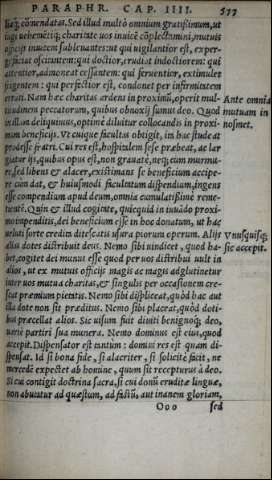 PARAPHR. CAP. IIII. 577
liæ; cōmendatas. Sed illud multò omnium gratissimum, ut
iugi uehemētiq; charitate uos inuicē cōplectamini, mutuis
officijs inuicem subleuantes: ut qui uigilantior est, exper-
gefaciat oscitantem: qui doctior, erudiat indoctiorem: qui
attentior, admoneat cessantem: qui feruentior, extimulet
frigentem: qui perfectior est, condonet per infirmitatem
erranti. Nam hæc charitas ardens in proximū, operit mul-
titudinem peccatorum, quibus obnoxij sumus deo. Quod
in illum deliquimus, optimè diluitur collocandis in proxi-
mum beneficijs. Vt cuique facultas obtigit, in hac studeat
prodesse fratri. Cui res est, hospitalem sese præbeat, ac lar
giatur ijs, quibus opus est, non grauatè, neq; cum murmu-
re, sed libens & alacer, existimans se beneficium accipe-
re cum dat, & huiusmodi facultatum dispendium, ingens
esse compendium apud deum, omnia cumulatissimè reme-
tientē. Quin & illud cogitet, quicquid in inuado proxi-
mo impenditis, dei beneficium esse in hoc donatum, ut hac
ueluti sorte credita ditescatis usura piorum operum. Alijs
alias dotes distribuit deus. Nemo sibi uindicet, quod ha-
bet, cogitet dei munus esse quod per uos distribui uult in
alios, ut ex mutuis officijs magis ac magis adglutinetur
inter uos mutua charitas, & singulis per occasionem cre-
scat præmium pietatis. Nemo sibi displiceat, quòd hac aut
illa dote non sit præditus. Nemo sibi placeat, quòd doti-
bus præcellat alios. Sic uisum fuit diuiti benignoq; deo,
uariè partiri sua munera. Nemo dominus est eius, quod
accepit. Dispensator est tantum: domini res est quam di-
spensat. Id si bona fide, si alacriter, si solicitè facit, ne
mercedē expectet ab homine, quum sit recepturus à deo.
Si cui contigit doctrina sacra, si cui donū eruditæ linguæ,
non abutatur ad quæstum, ad fastū, aut inanem gloriam,
Ooo sed
Ante omnia
mutuam in
nosmet.
Vnusquisq;
sic accepit.